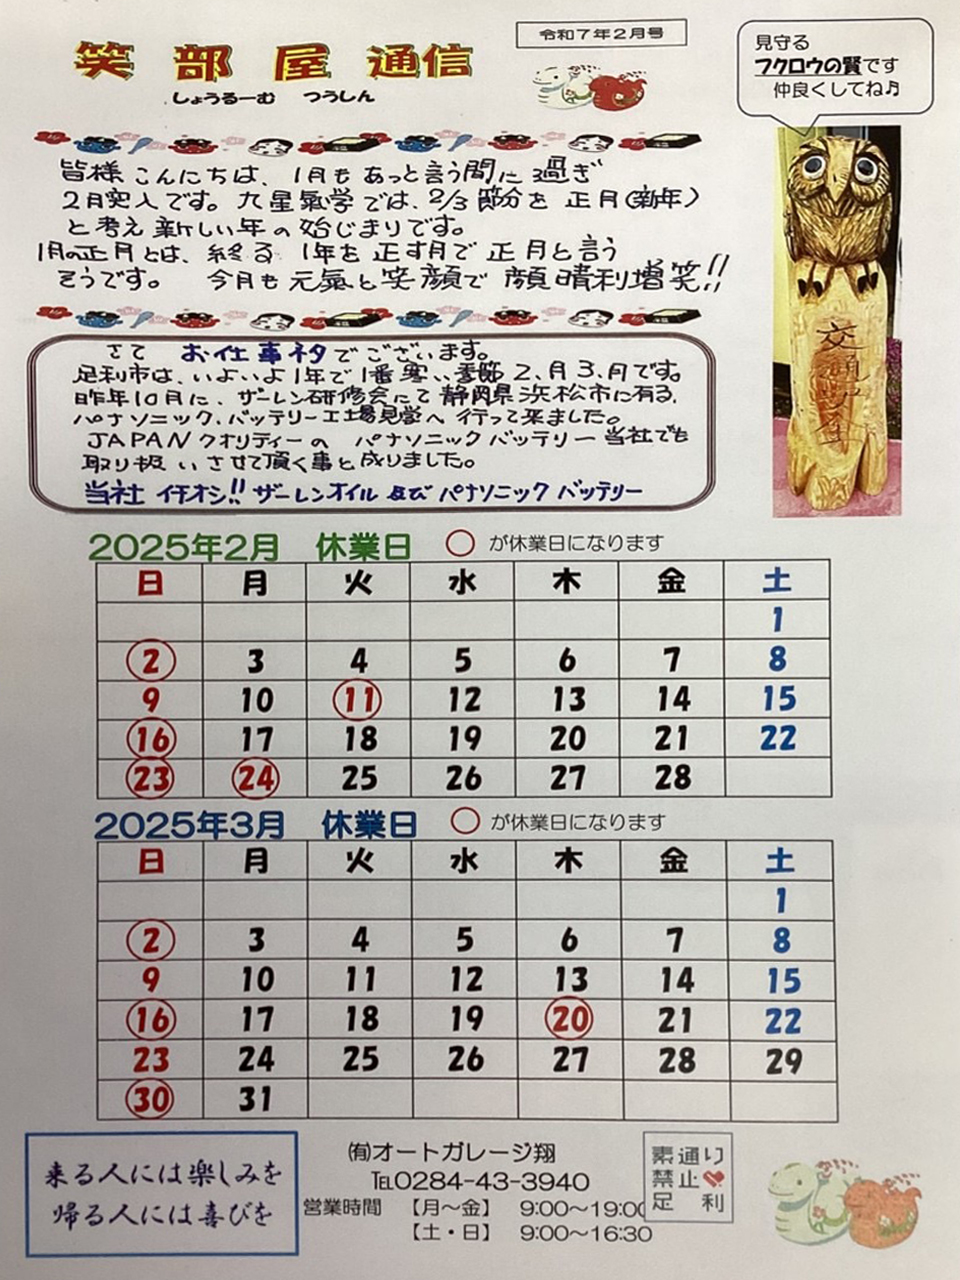 笑部屋通信
しょうるーむ つうしん
令和7年2月号
見守る
フクロウの賢です
仲良くしてね♬
皆様こんにちは、1月もあっと言う間に過ぎ
2月突入です。九星氣学では、2/3節分を正月(新年)
と考え新しい年の始じまりです。
1月の正月とは、終る 1年を正す月で正月と言う
そうです。 今月も元氣と笑顔で顔晴利増笑!!
さて お仕事ネタでございます。
足利市は、いよいよ1年で1番寒い季節2、月3、月です。
昨年10月に、ザーレン研修会にて静岡県浜松市に有る、
パナソニック、バッテリー工場見学へ行って来ました。
JAPANクオリティーの パナソニックバッテリー当社でも
取り扱いさせて頂く事と成りました。
当社イチオシ!! ザーレンオイル及びパナソニックバッテリー
交通安全
2025年2月 休業日 ○が休業日になります
日 月 火 水 木 金 土
1
2 3 4 5 6 7 8
9 10 11 12 13 14 15
16 17 18 19 20 21 22
23 24 25 26 27 28
2025年3月 休業日 ○が休業日になります
日 月 火 水 木 金 土
1
2 3 4 5 6 7 8
9 10 11 12 13 14 15
16 17 18 19 20 21 22
23 24 25 26 27 28 29
30 31
来る人には楽しみを
帰る人には喜びを
㈲オートガレージ翔
℡0284-43-3940
営業時間 【月～金】 9:00～19:00
【土・日】 9:00～16:30
素通り
禁止
足利